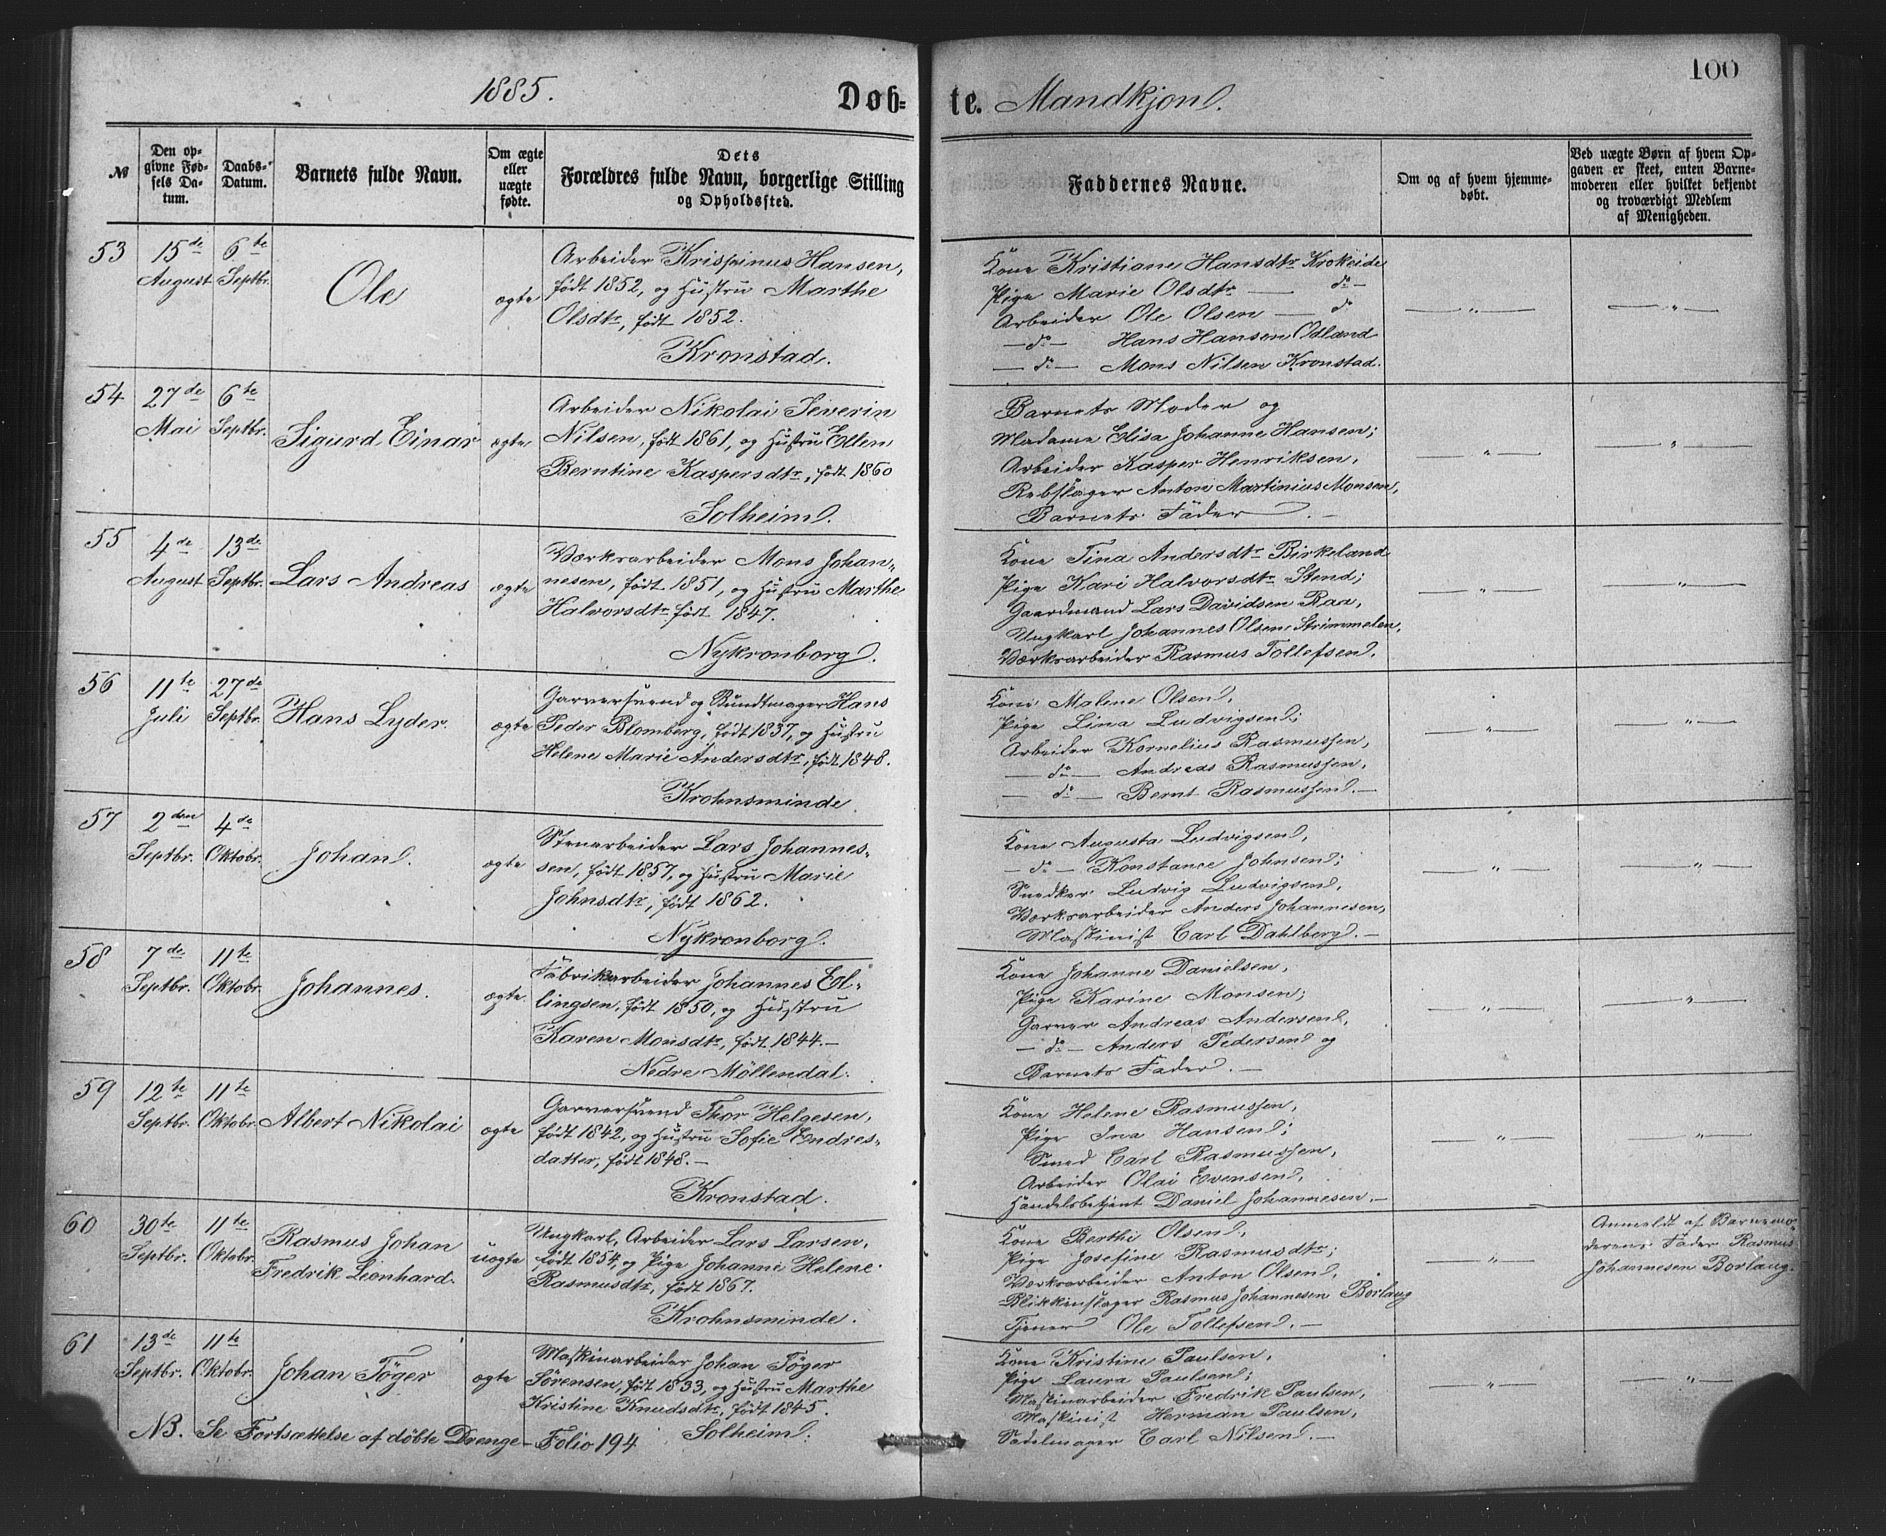 1885.
Døb-
№
Den opgivne Fødsels Datum.
Daabs-Datum.
Barnets fulde Navn.
Om ægte eller uægte fødte.
Dets
Forældres fulde Navn, borgerlige Stilling
og Opholdssted.
53
15de August
6te Septbr.
Ole
ægte
Arbeider Krispinus Hansen,
født 1852, og Hustru Marthe
Olsdtr, født 1852.
Kronstad.
54
27de Mai
6te Septbr.
Sigurd Einar
ægte
Arbeider Nikolai Severin
Nilsen, født 1861, og Hustru Ellen
Berntine Kaspersdtr, født 1860
Solheim.
55
4de August
13de Septbr.
Lars Andreas
ægte
Værksarbeider Mons Johan-
nesen, født 1851, og Hustru Marthe
Halvorsdtr født 1847.
Nykronborg.
56
11te Juli
27de Septbr.
Hans Lyder.
ægte
Garversvend og Bundtmager Hans
Peder Blomberg, født 1837, og Hustru
Helene Marie Andersdtr, født 1848.
Krohnsminde.
57
2den Septbr.
4de Oktobr.
Johan.
ægte
Stenarbeider Lars Johannes-
sen, født 1857, og Hustru Marie
Johnsdtr, født 1862.
Nykronborg.
58
7de Septbr.
11te Oktobr.
Johannes.
ægte.
Fabrikarbeider Johannes El-
lingsen, født 1850, og Hustru
Karen Monsdtr, født 1844.—
Nedre Möllendal.
59
12te Septbr.
11te Oktobr.
Albert Nikolai
ægte
Garversvend Thor Helgesen,
født 1842, og Hustru Sofie Endres-
datter, født 1848.—
Kronstad.
60
30te Septbr.
11te Oktobr.
Rasmus Johan
Fredrik Leonhard.
uægte
Ungkarl, Arbeider Lars Larsen,
født 1854, og Pige Johanne Helene
Rasmusdtr, født 1867.
Krohnsminde.
61
13de Septbr.
11te Oktobr.
Johan Töger
ægte
Maskinarbeider Johan Töger
Sörensen, født 1833, og Hustru Marthe
Kristine Knudsdtr, født 1845.
Solheim.
NB. Se Fortsættelse af döbte Drenge - Folio 194
te. Mandkjøn.
100
Faddernes Navne.
Om og af hvem hjemmedøbt.
Ved uægte Børn af hvem Opgaven er skeet, enten Barnemoderen eller hvilket bekjendt og troværdigt Medlem af Menigheden.
Kone Kristiane Hansdtr Krokeide
Pige Marie Olsdtr — do —
Arbeider Ole Olsen — do
— do — Hans Hansen Odland
— do — Mons Nilsen Kronstad.
— " —
— " —
Barnets Moder og
Madame Elisa Johanne Hansen;
Arbeider Kasper Henriksen,
Rebslager Anton Martinius Monsen,
Barnets Fader. —
— " —
— " —
Kone Tina Andersdtr Birkeland
Pige Kari Halvorsdtr Stend;
Gaardmand Lars Davidsen Raa,
Ungkarl Johannes Olsen Strimmelen,
Værksarbeider Rasmus Tollefsen.
— " —
— " —
Kone Malene Olsen,
Pige Lina Ludvigsen;
Arbeider Kornelius Rasmussen,
— do — Andreas Rasmussen,
— do — Bernt Rasmussen. —
— " —
— " —
Kone Augusta Ludvigsen,
— do — Konstance Johnsen;
Snedker Ludvig Ludvigsen,
Værksarbeider Anders Johannesen,
Maskinist Carl Dahlberg. —
— " —
— " —
Kone Johanne Danielsen,
Pige Karine Monsen;
Garver Andreas Andersen,
— do — Anders Pedersen og
Barnets Fader. —
— " —
— " —
Kone Helene Rasmussen,
Pige Ina Hansen;
Smed Carl Rasmussen,
Arbeider Olai Evensen,
Handelsbetjent Daniel Johannesen. —
— " —
— " —
Kone Berthe Olsen,
Pige Josefine Rasmusdtr;
Værksarbeider Anton Olsen,
Blikkenslager Rasmus Johannesen Borlaug
Tjener Ole Tollefsen. —
— " —
Anmeldt af Barnemo-
derens Fader Rasmus
Johannesen Borlaug.
Kone Kristine Paulsen,
Pige Laura Paulsen;
Maskinarbeider Fredrik Paulsen,
Maskinist Herman Paulsen,
Sadelmager Carl Nilsen. —
— " —
— " —